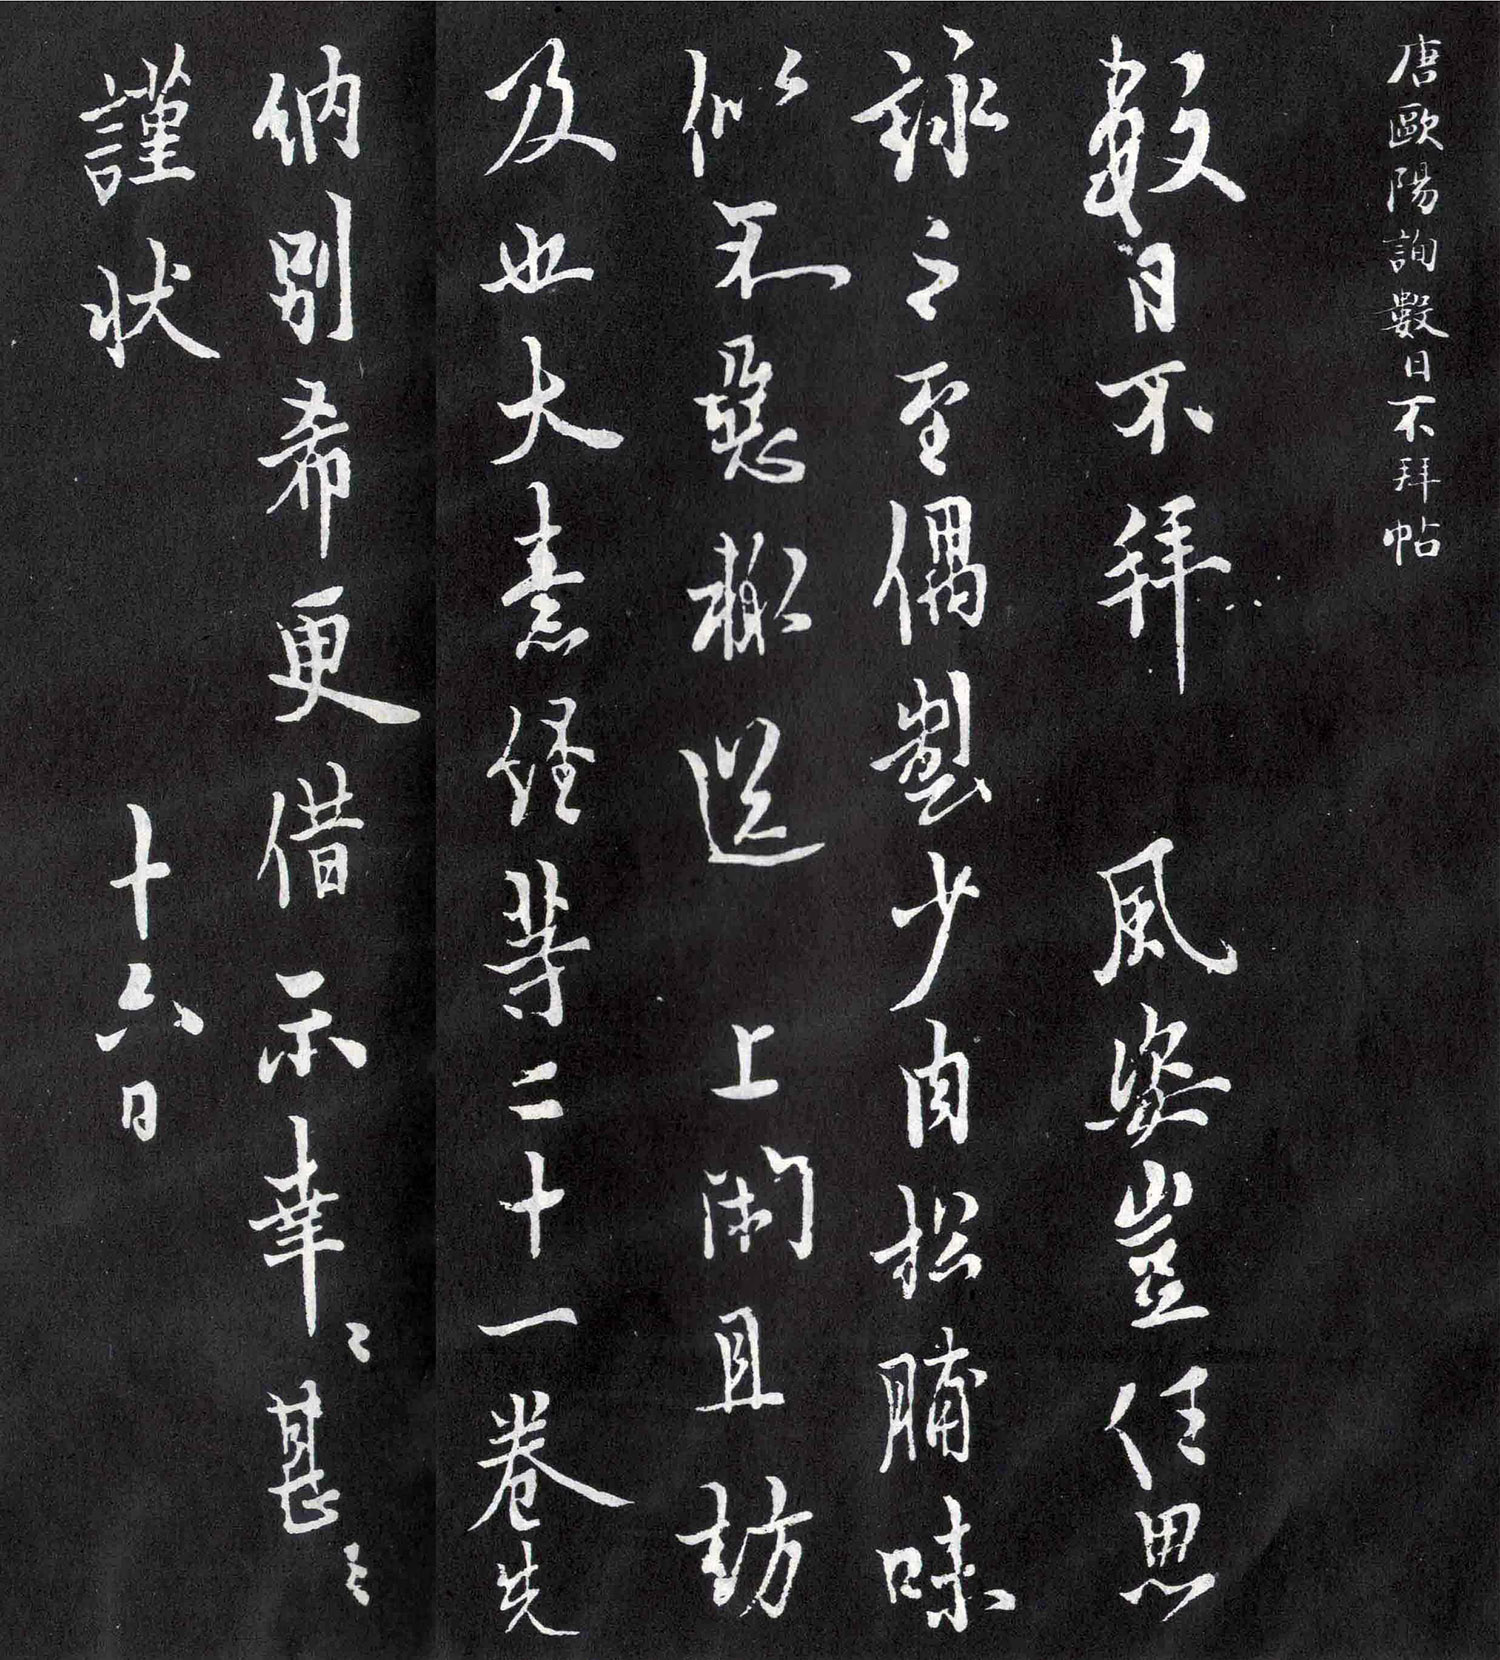 唐歐陽詢數日不拜帖
數日不拜 風姿豈任思
詠之至偶製少肉松脯味
似不惡輒送 上閑且訪
及也大素經等二十一卷先
納別希更借示幸〻甚〻
謹狀 十六日